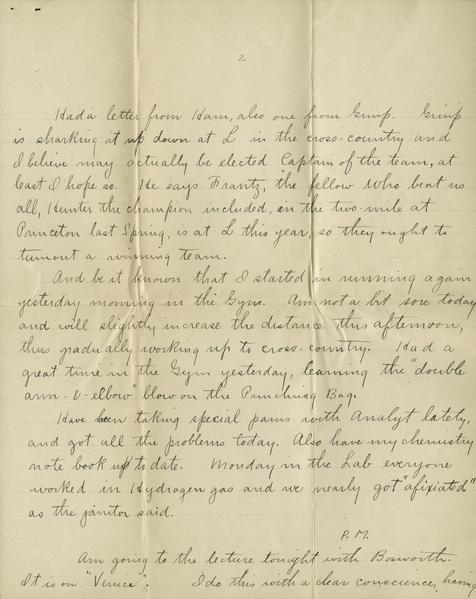 2
Had a letter from Ham, also one from Gimp. Gimp
is sharking it up down at L in the cross-country and
I believe may actually be elected Captain of the team, at
least I hope so. He says Frantz, the fellow who beat us
all, Hunter the champion included, in the two-mile at
Princeton last Spring, is at L this year, so they ought to
turnout a winning team.
And be it known that I started in running again
yesterday morning in the Gym. Am not a bit sore today
and will slightly increase the distance this afternoon,
thus gradually working up to cross-country. Had a
great time in the Gym yesterday, learning the "double
arm-&-elbow" blow on the Punching Bag.
Have been taking special pains with Analyt lately,
and got all the problems today. Also have my chemistry
note book up to date. Monday in the Lab everyone
worked in Hydrogen gas and we nearly got "afixiated"
as the janitor said.
P.M.
Am going to the lecture tonight with Bosworth.
It is on "Venice". I do this with a clear conscience, having